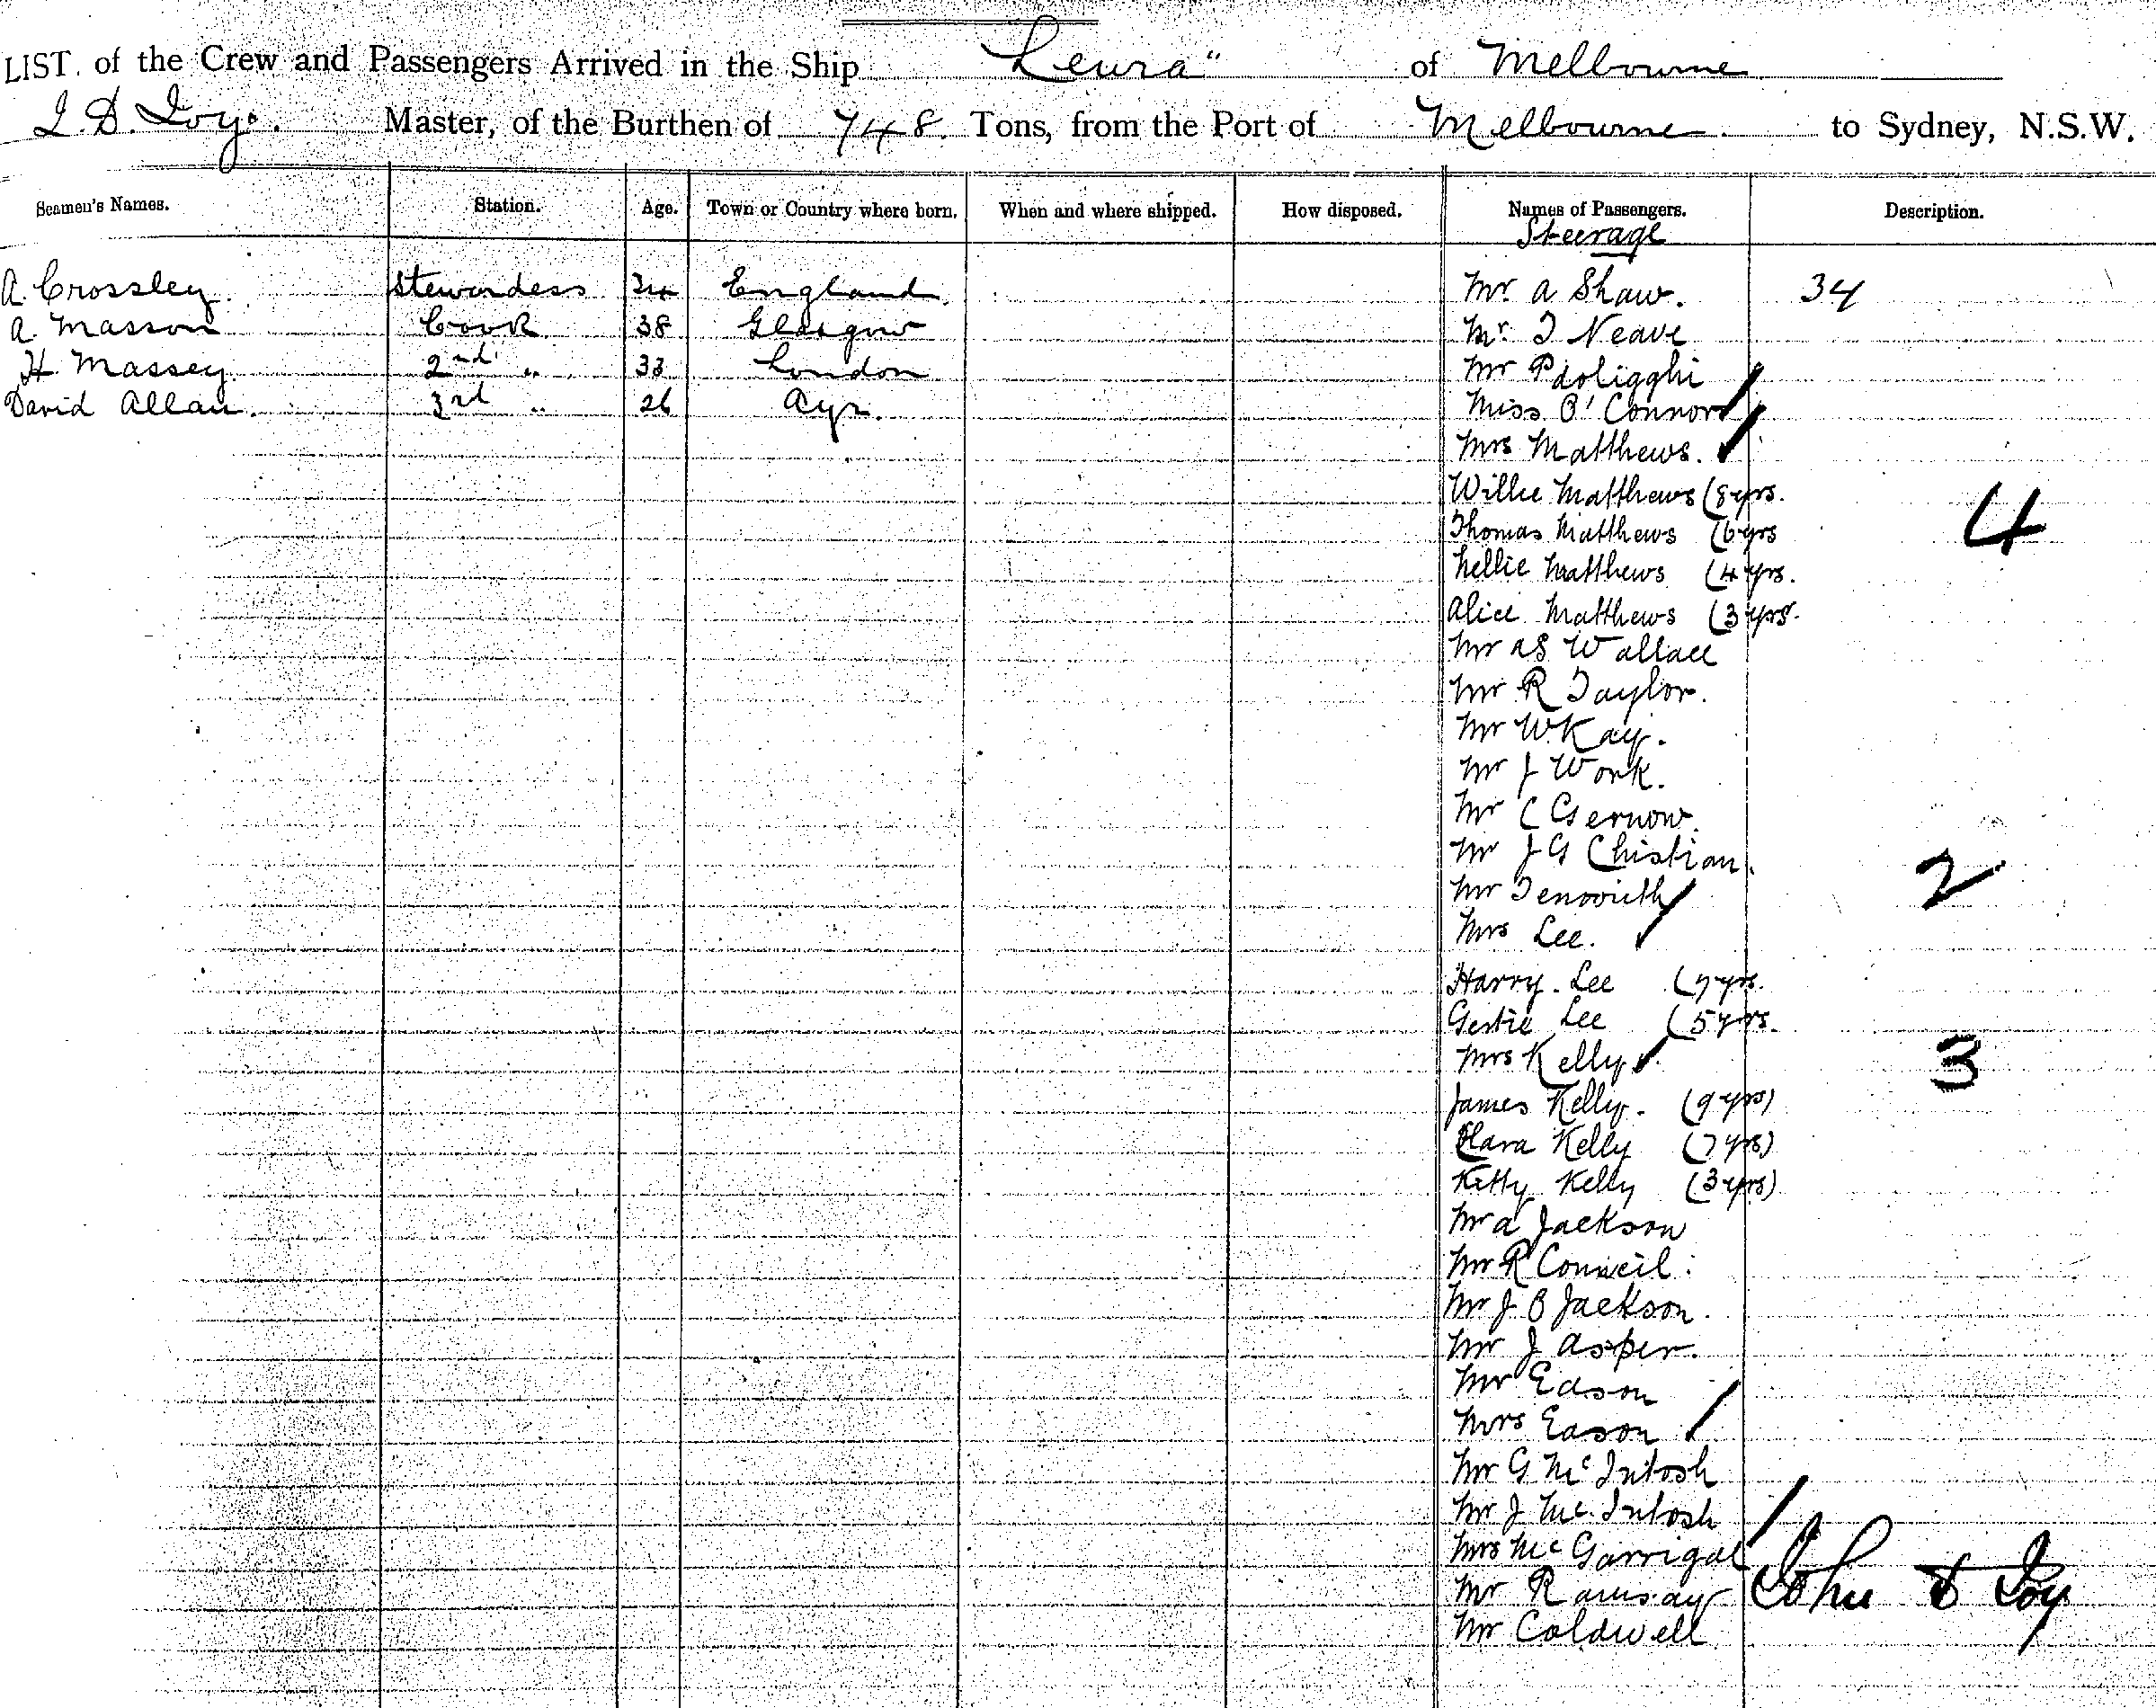 LIST of the Crew and Passengers Arrived in the Ship "Leura" of Melbourne
J. D. Joy. Master, of the Burthen of 748. Tons, from the Port of Melbourne to Sydney, N.S.W.
Seamen's Names. Station. Age. Town or Country where born. When and where shipped. How disposed. Names of Passengers. Description.
Steerage
A. Crossley Stewardess 34 England. Mr. A Shaw. 34
A. Masson Cook 38 Glasgow Mr. T Neave
H. Massey. 2nd " 33 London Mr
David Allan. 3rd " 26 Ayr. Miss O'Connor
Mrs Matthews.
Willie Matthews (8 yrs.
Thomas Matthews (6 yrs 4
Nellie Matthews (4 yrs.
Alice Matthews (3 yrs.
Mr AS Wallace
Mr R Taylor.
Mr W. Kay.
Mr J Work.
Mr C Gernow.
Mr J G Chistian.
Mr 2
Mrs Lee.
Harry Lee (7 yrs.
Gertie Lee (5 yrs.
Mrs Kelly 3
James Kelly. (9 yrs)
Clara Kelly (7 yrs)
Kitty Kelly (3 yrs)
Mr A Jackson
Mr R Conneil.
Mr J B Jackson.
Mr J Asper.
Mr Eason
Mrs Eason
Mr G McIntosh
Mr J McIntosh
Mrs McGarrigal
Mr Ramsay John D Joy
Mr Coldwell